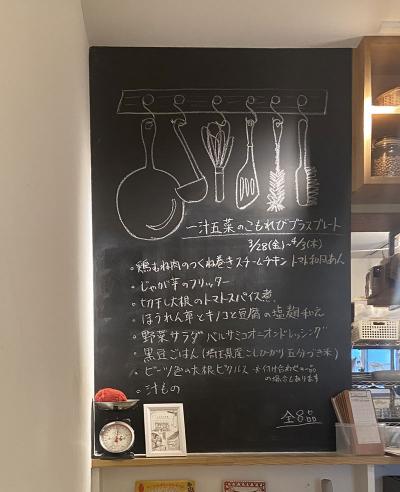 一汁五菜のこもれびプラスプレート
3/28(金)~4/3(木)
・鶏むね肉のつくね巻きスチームチキン トマト和風あん
・じゃが芋のフリッター
・切干し大根のトマトスパイス煮
・ほうれん草とキノコと豆腐の塩麹和え
・野菜サラダ バルサミコオニオンドレッシング
・黒豆ごはん(埼玉県産こしひかり五分づき米)
・ビーツ色の大根ピクルス ※付け合わせの一品
の場合もあります
・汁もの
全8品